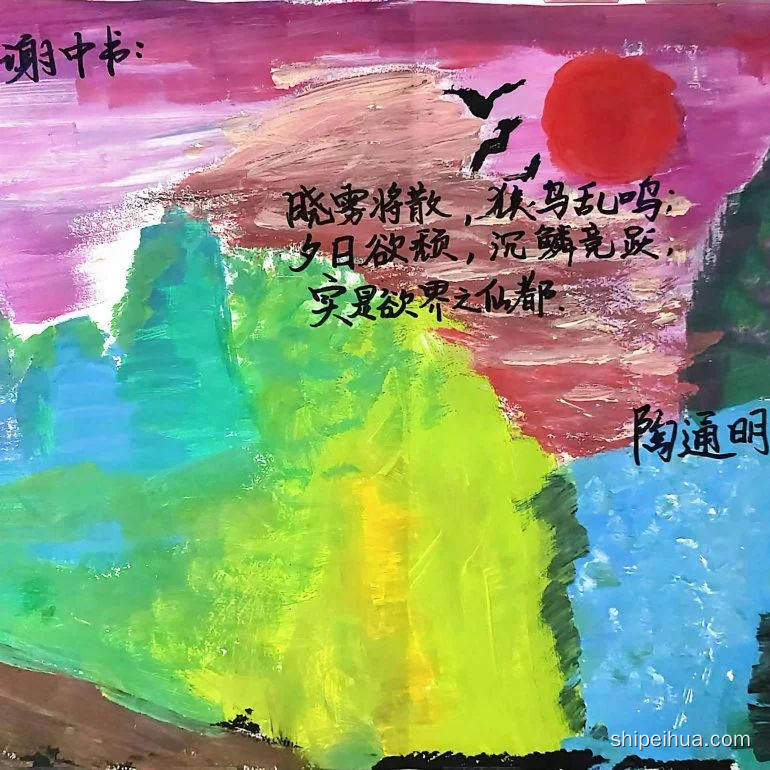 谢中书：
晓雾将散，猿鸟乱鸣；
夕日欲颓，沉鳞竞跃；
实是欲界之仙都.
陶通明
shipeihua.com